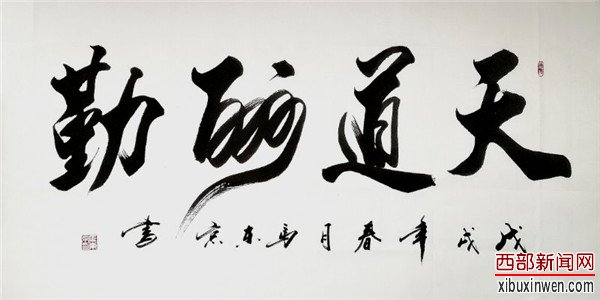 天道酬勤
戊戌年春月马东京书
西部新闻网
xibuxinwen.com